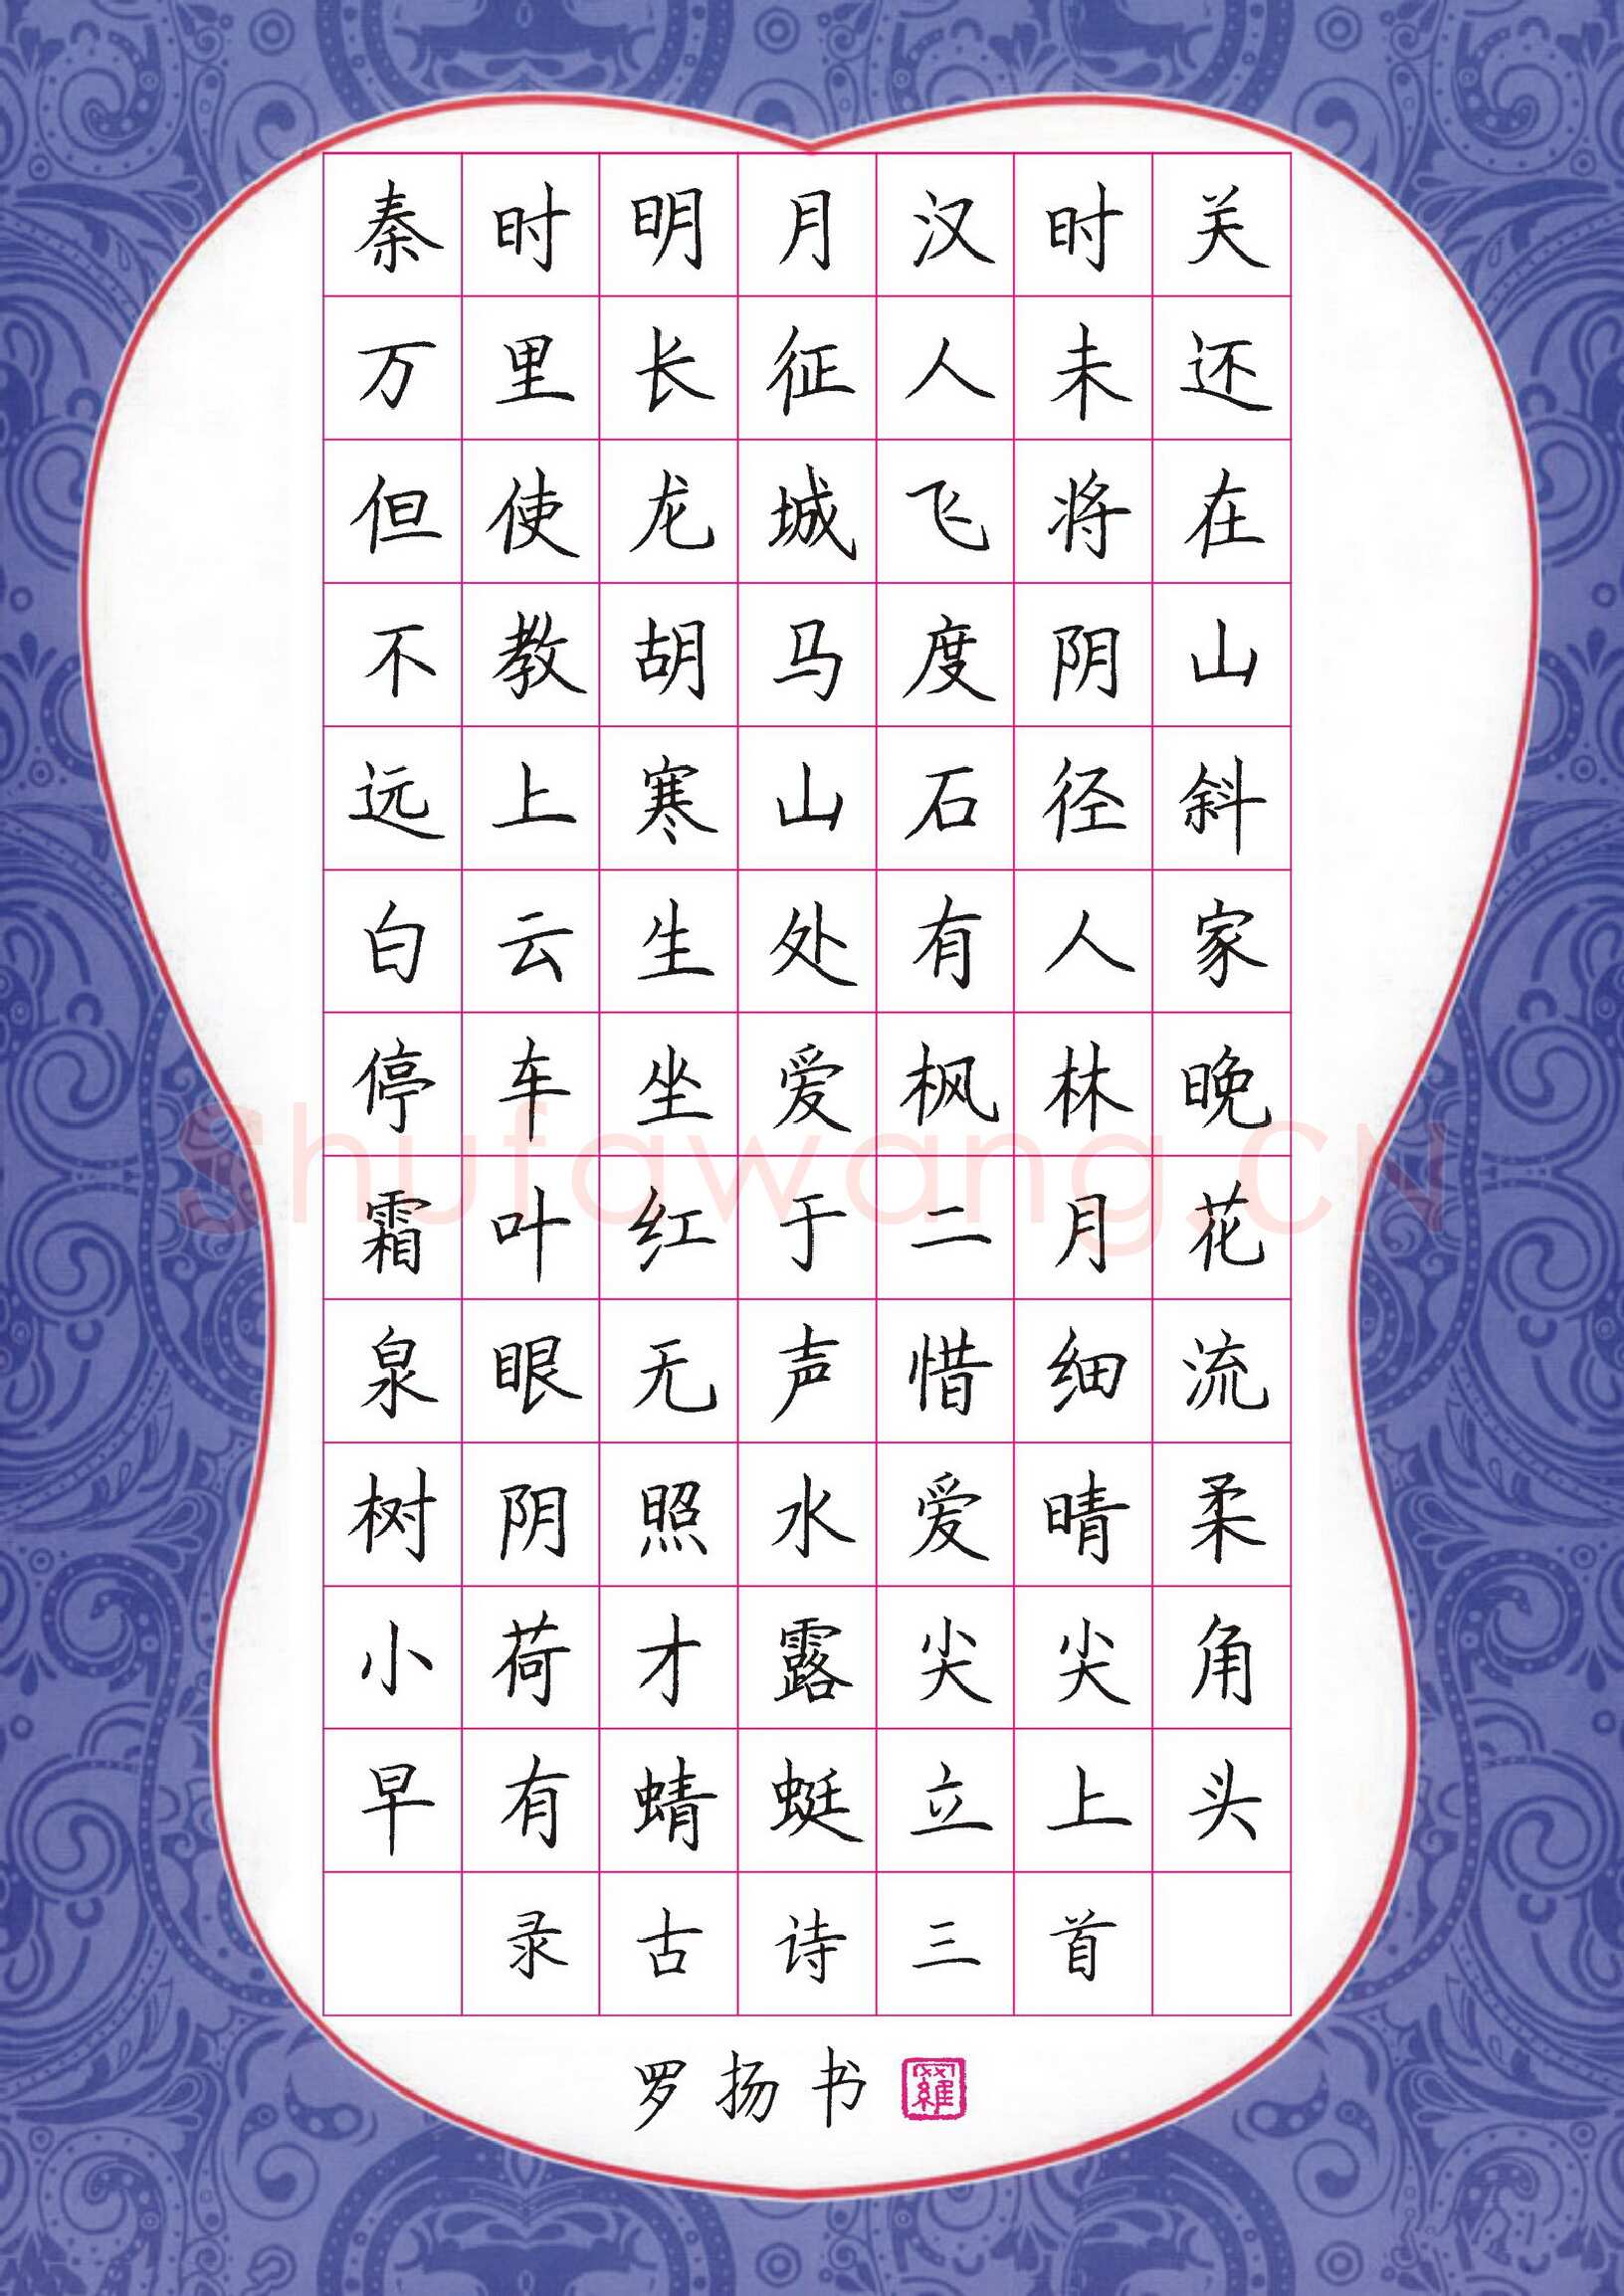 秦时明月汉时关
万里长征人未还
但使龙城飞将在
不教胡马度阴山
远上寒山石径斜
白云生处有人家
停车坐爱枫林晚
霜叶红于二月花
泉眼无声惜细流
树阴照水爱晴柔
小荷才露尖尖角
早有蜻蜓立上头
录古诗三首
罗扬书
羅
Shufawang.CN